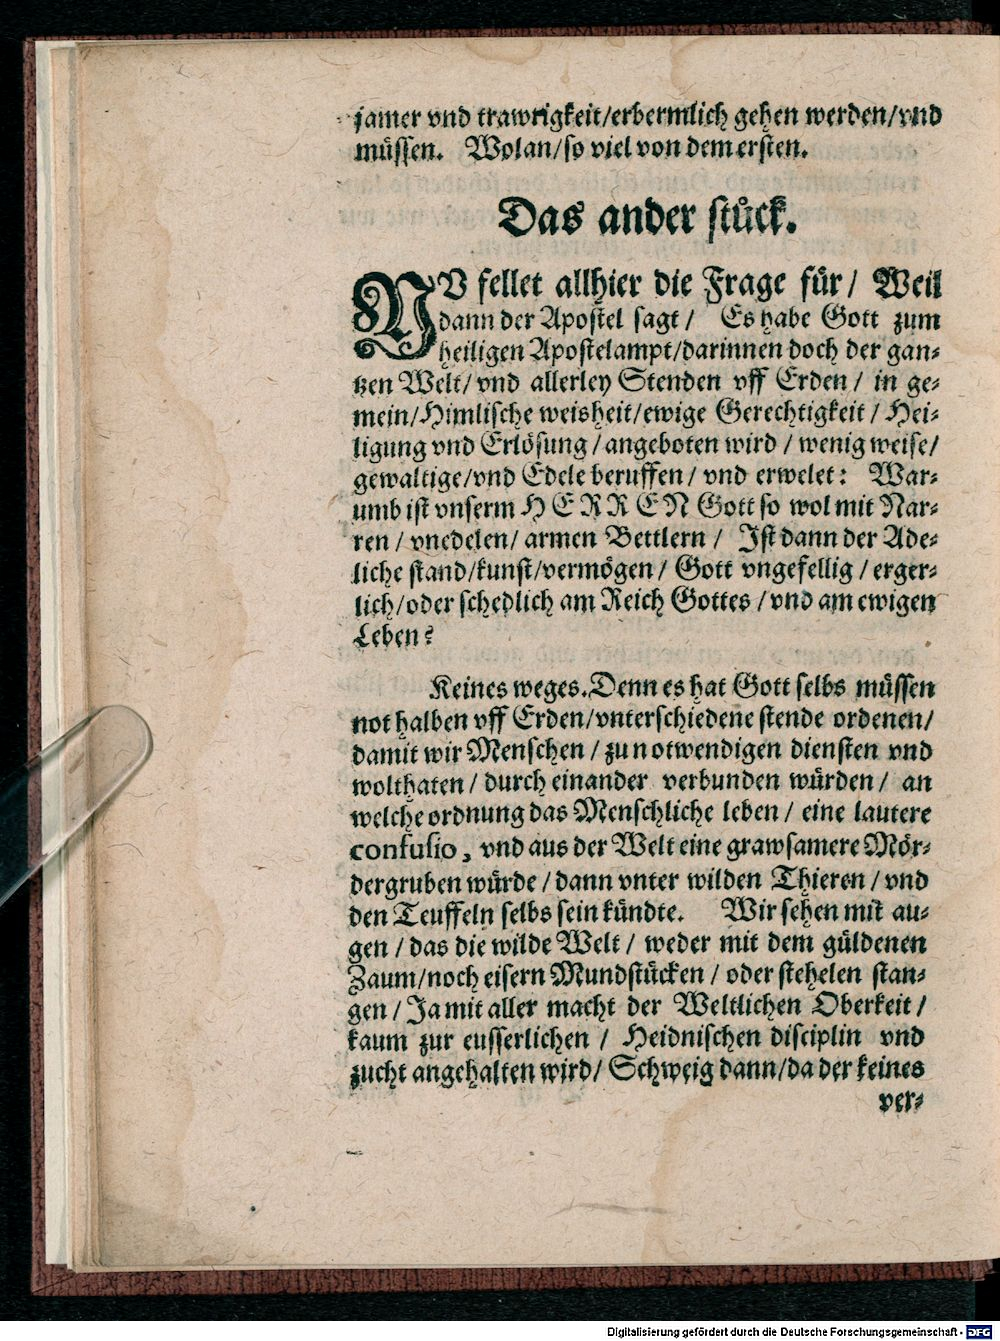 jamer vnd trawrigkeit/erbermlich gehen werden/vnd
müssen. Wolan/so viel von dem ersten.
Das ander stück.
NV fellet allhier die Frage für/ Weil
dann der Apostel sagt/ Es habe Gott zum
heiligen Apostelampt/darinnen doch der gan⸗
tzen Welt/ vnd allerley Stenden vff Erden/ in ge⸗
mein/Himlische weisheit/ewige Gerechtigkeit/ Hei⸗
ligung vnd Erlösung/angeboten wird/ wenig weise/
gewaltige/vnd Edele beruffen/ vnd erwelet: War⸗
umb ist vnserm HERREN Gott so wol mit Nar⸗
ren/ vnedelen/ armen Bettlern/ Ist dann der Ade⸗
liche stand/kunst/vermögen/ Gott vngefellig/ erger⸗
lich/oder schedlich am Reich Gottes/vnd am ewigen
Leben?
Keines weges. Denn es hat Gott selbs müssen
not halben vff Erden/vnterschiedene stende ordenen/
damit wir Menschen/ zu notwendigen diensten vnd
wolthaten/ durch einander verbunden würden/ an
welche ordnung das Menschliche leben/ eine lautere
confusio, vnd aus der Welt eine grawsamere Mör⸗
dergruben würde/dann vnter wilden Thieren/ vnd
den Teuffeln selbs sein kündte. Wir sehen mit au⸗
gen/ das die wilde Welt/ weder mit dem güldenen
Zaum/noch eisern Mundstücken/ oder stehelen stan⸗
gen/ Ja mit aller macht der Weltlichen Oberkeit/
kaum zur eusserlichen/ Heidnischen disciplin vnd
zucht angehalten wird/ Schweig dann/da der keines
ver⸗
Digitalisierung gefördert durch die Deutsche Forschungsgemeinschaft - DFG